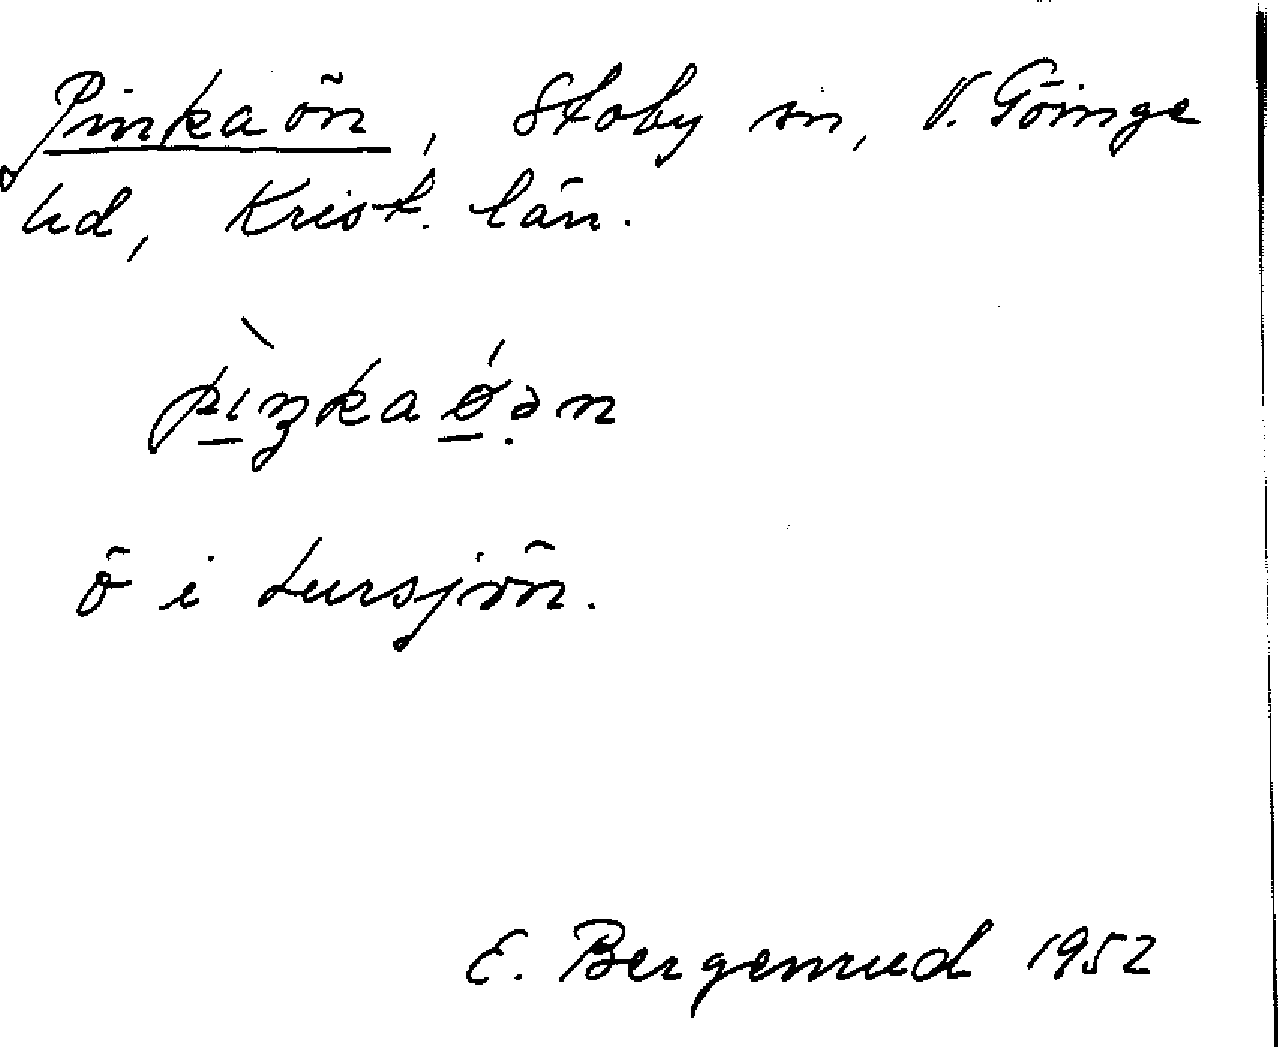 Pinkaön, Stoby sn, V. Göinge
hd, Krist. län.
pı̀ŋkaǿ.ən
ö i Lursjön.
E. Bergenrud 1952